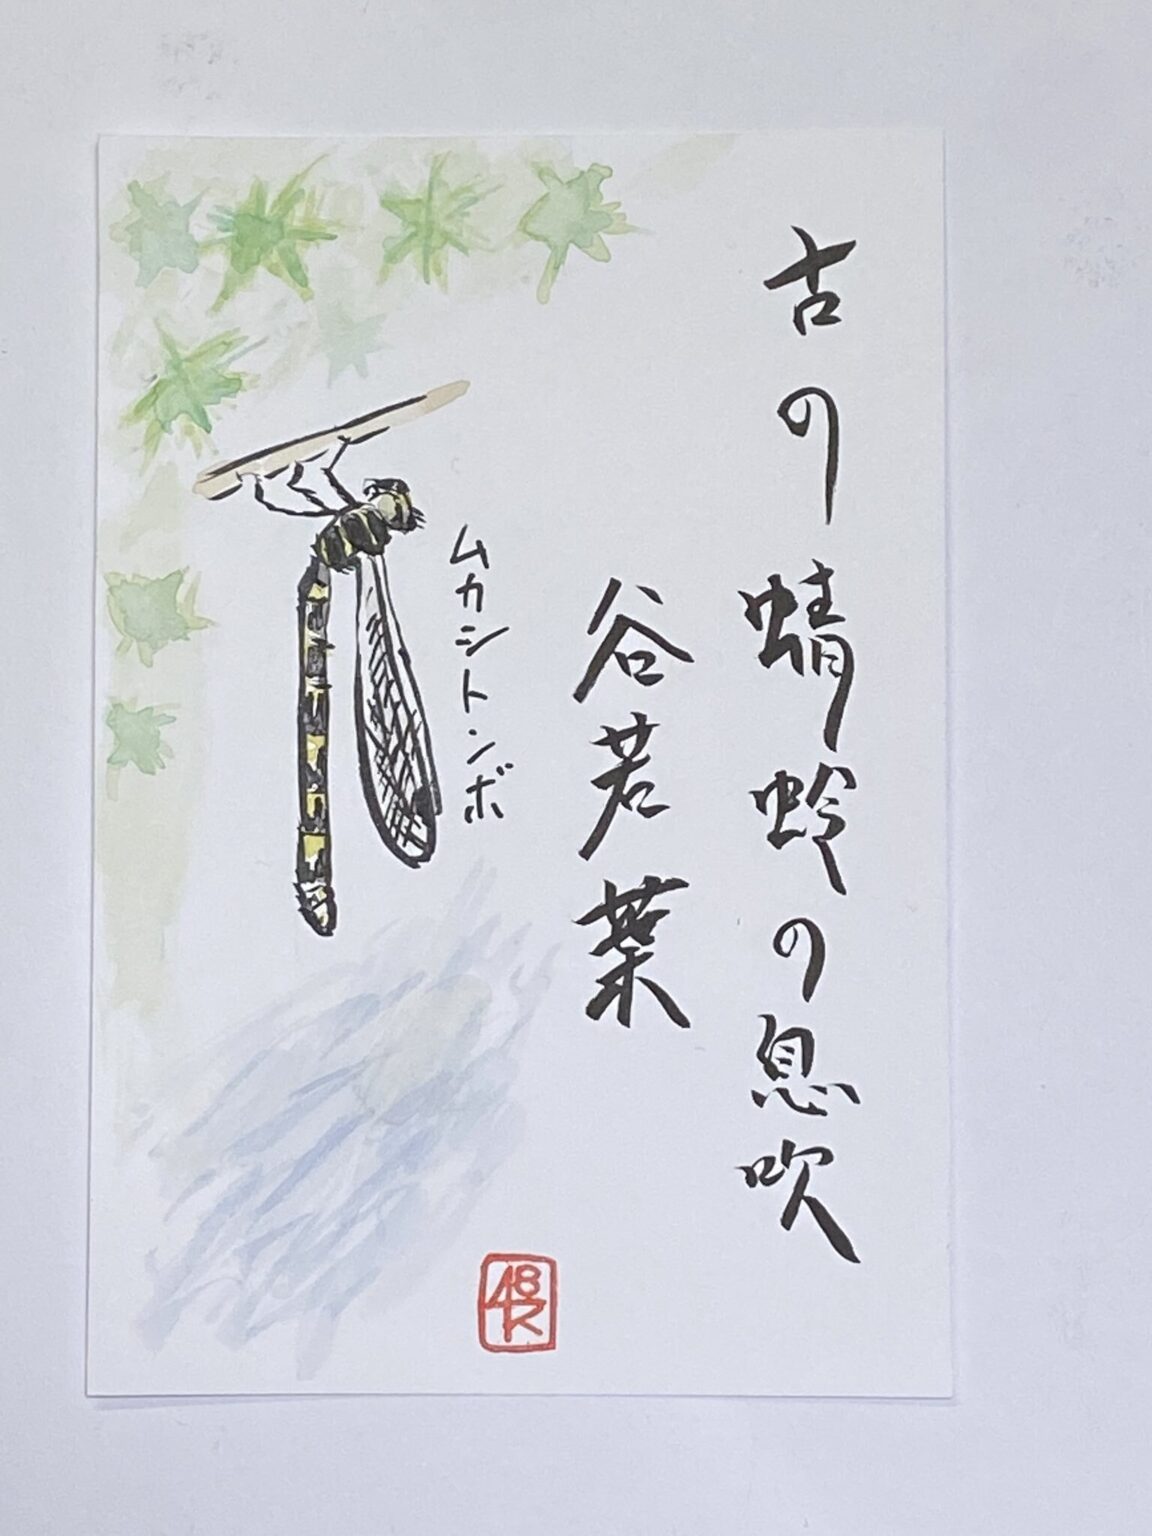 古の蜻蛉の息吹
谷若葉
ムカシトンボ
48
K